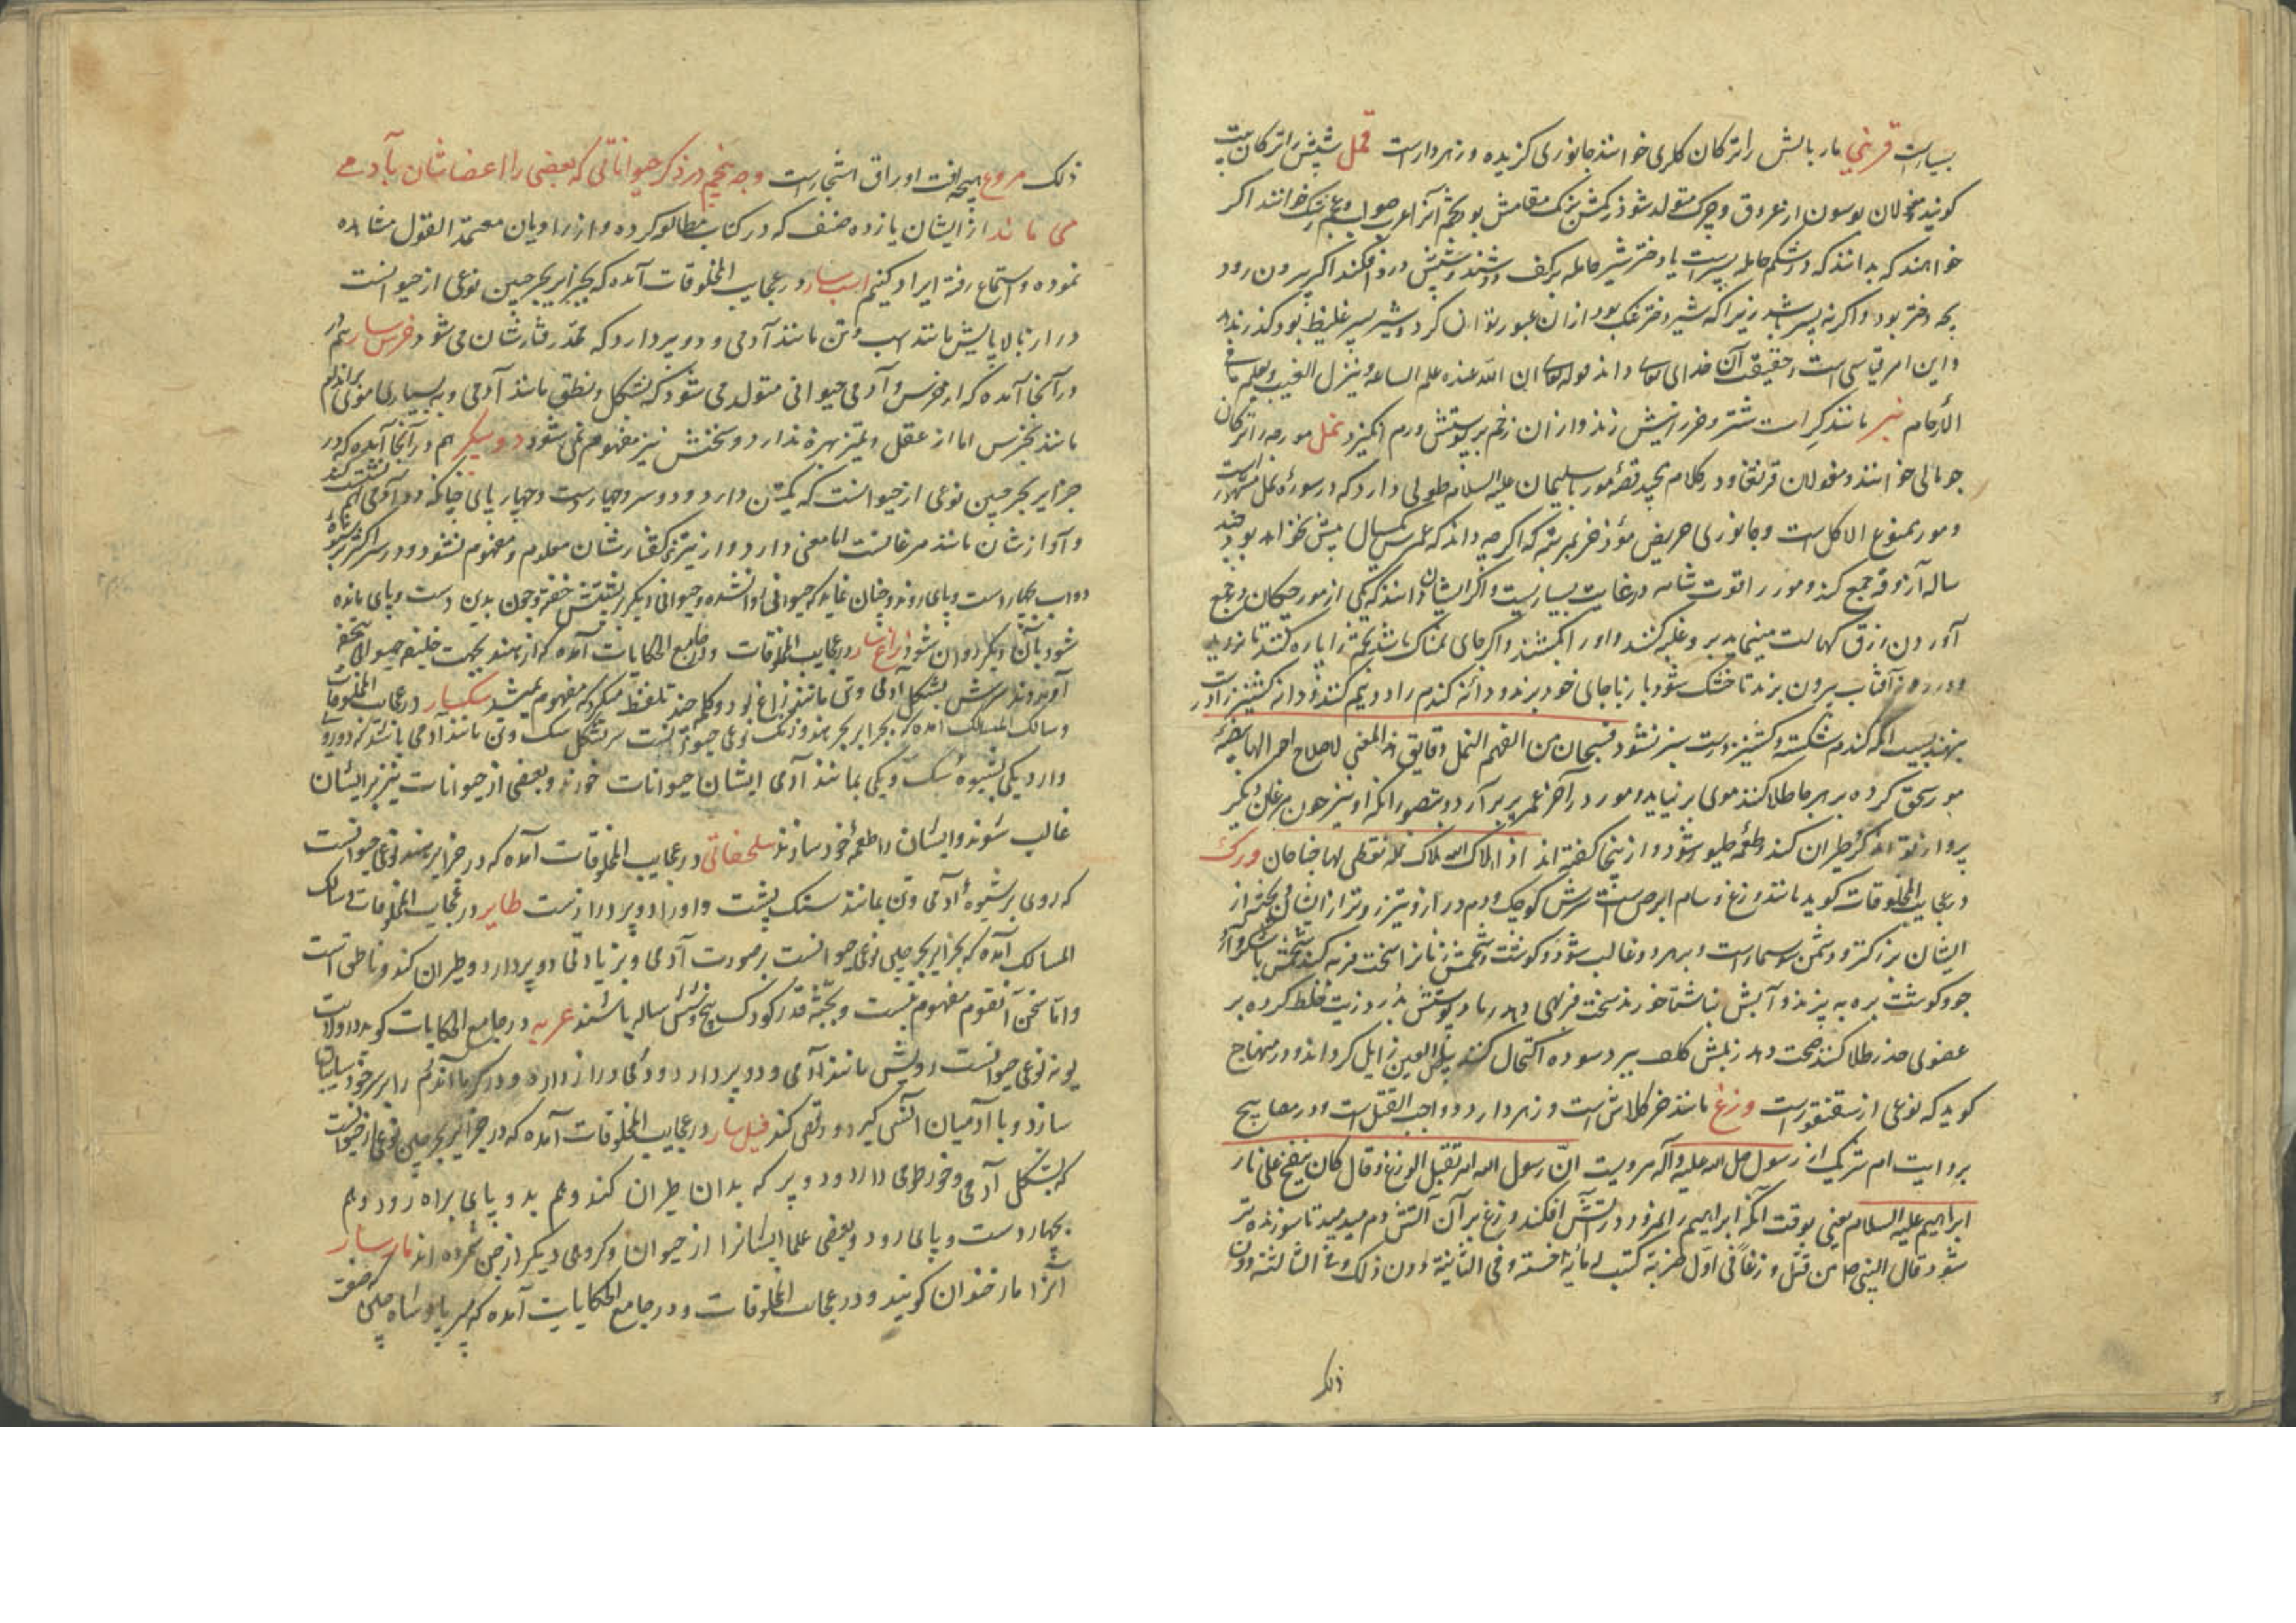 بسیارست قرنبی مار بالش را ترکان کلری خوانند جانوری گزیده و زهردارست قمل شپش را ترکان بیت
گویند مغولان بوسون از عروق و چرک متولد شود
خواهند که بدانند که در شکم حامله پسرست یا دختر شیر حامله بر کف دوشند و شپش درو افکنند اگر بیرون رود
بچه دختر بود و اگر نه پسر باشد زیرا که شیر دختر تنک بود از آن عبور تواند کرد و شیر پسر غلیظ بود گذر ندهد
و این امر قیاسی است و حقیقت آن خدای تعالی داند قوله تعالی ان الله عنده علم الساعه و ینزل الغیث و یعلم ما فی
الأرحام نبر مانند کرات شتر و خر را نیش زند و از آن زخم بر پوستش ورم انگیزد نمل مورچه را ترکان
خوانند و مغولان و در کلام مجید قصهٔ مور با سلیمان علیه السلام طولی دارد که در سورهٔ نمل مشهور است
و مور ممنوع الاکل است و جانوری حریص مؤذی که اگر چه داند که عمرش یکسال بیش نخواهد بود چند
ساله آزوقه جمع کند و مور را قوت شامه در غایت بسیاریست و اگر ایشان دانند که یکی از مورچگان در جمع
آوردن رزق کهالت مینماید برو غلبه کنند و او را بکشند و اگر جای نمناک باشد تخم را پاره کنند تا نروید
آفتاب بیرون برند تا خشک شود باز بجای خود برند و دانه گندم را دو نیم کنند و دانه کشنیز را در
نهند اگه گندم شکسته و کشنیز درست سبز نشود فسبحان من الهم النمل دقایق هذا المعنی لاصلاح احوالها بیضهٔ
مور سحق کرده بر هر جا طلا کنند موی بر نیاید و مور در آخر عمر پر بر آرد و بتصور آنکه او نیز چون مرغان دیگر
پرواز تواند کرد طیران کند و طعمهٔ طیور شود و از ینجا گفته اند اذا اهلاک الله هلاک نملة لها جناحان ورک
در عجایب المخلوقات گوید مانند وزغ و سام ابرص است سرش کوچک و دم دراز و تیزروتر از ایشان
ایشان بزرکتر و دشمن سوسمارست و برو غالب شود و گوشت و شحمش زنانرا سخت فربه کند
جو و گوشت بره به پزند و آبش بناشتا خورند سخت فربهی دهد رماد پوستش بدُردِ زیت خلط کرده بر
عضوی خدر طلا کنند صحت دهد زبلش کلف ببرد سوده اکتحال کنند بیاض العین زایل گرداند و در منهاج
گوید که نوعی از سقنقورست وزغ مانند خر کلاش است و زهر دارد و واجب القتل است و در مصابیح
بروایت ام شریک از رسول صلی الله علیه و آله مرویست ان رسول الله امر بقتل الوزغ و قال کان ینفخ علی نار
ابراهیم علیه السلام یعنی بوقت آنکه ابراهیم را نمرود در آتش افکند وزغ بر آن آتش دم میدمید تا سوزنده تر
شود قال النبی ص من قتل وزغاً فی اول ضربة کتب له مایة حسنة و فی الثانیة دون ذلک و فی الثالثة دون
ذلک
ذلک مروع آفت اوراق اشجارست وجه پنجم در ذکر حیواناتی که بعضی را اعضا شان بآدمی
می ماند از ایشان یازده صنف که در کتاب مطالعه کرده و از راویان معتمد القول مشاهده
نموده و استماع رفته ایراد کنیم اسب سار در عجایب المخلوقات آمده که بجزایر بحر چین نوعی از حیوانست
دراز بالا پایش مانند اسب و تن مانند آدمی و دو پر دارد که ممد رفتارشان می شود خرس سار هم
در آنجا آمده که از خرس و آدمی حیوانی متولد می شود که بشکل و نطق مانند آدمی و به بسیاری موی بر اندام
مانند خرس اما از عقل و تمیز بهره ندارد و سخنش نیز مفهوم نمی شود دو پیکر هم در آنجا آمده که در
جزایر بحر چین نوعی از حیوانست که یک تن دارد و دو سر و چهار دست و چهار پای چنانکه دو آدمی بهم
و آوازشان مانند مرغانست اما معنی دارد و از تیزی گفتارشان معلوم و مفهوم نشود و در
دو اب بچهار دست و پای روند و چنان نماید که حیوانی روان شده و حیوانی دیگر بر پشتش خفته و چون بدین دست و پای مانده
شود بآن دیگر روان شود زاغ سار در عجایب المخلوقات و جامع الحکایات آمده که از هند بجهت خلیفه حیوانی بتحفه
آوردند سرش بشکل آدمی و تن مانند زاغ بود و کلمه چند تلفظ میکرد که مفهوم نمیشد سکسار در عجایب المخلوقات
و سالک المسالک آمده که بجزایر بحر هند و زنگ نوعی حیوانست سر بشکل سگ و تن مانند آدمی باشد که دو روی
دارد یکی بشیوهٔ سگ و یکی بمانند آدمی ایشان حیوانات خورند و بعضی از حیوانات نیز بر ایشان
غالب شوند و ایشان را طعمهٔ خود سازند سلحفاتی در عجایب المخلوقات آمده که در جزایر هند نوعی حیوانست
که روی بر شیوهٔ آدمی و تن بمانند سنگ پشت و او را دو پر درازست طایر در عجایب المخلوقات و سالک
المسالک آمده که بجزایر بحر چین نوعی حیوانست بر صورت آدمی و بزیادتی دو پر دارد و طیران کند و ناطق است
و اما سخن آنقوم مفهوم نیست و بجثه قدر کودک پنج شش ساله باشند عربه در جامع الحکایات گوید در ولایت
یونه نوعی حیوانست رویش مانند آدمی و دو پر دارد و دمی دراز دارد و در گرما آندم را بر سر خود سایبان
سازد و با آدمیان انس گیرد و توقی کند فیل سار در عجایب المخلوقات آمده که در جزایر بحر چین نوعی از حیوانست
که بشکل آدمی و خرطومی دارد و دو پر که بدان طیران کند و هم بدو پای براه رود و هم
بچهار دست و پای رود و بعضی علما ایشانرا از حیوان و گروهی دیگر از جن شمرده اند مار سار
آنرا مار خندان گویند و در عجایب المخلوقات و در جامع الحکایات آمده که پادشاه چین